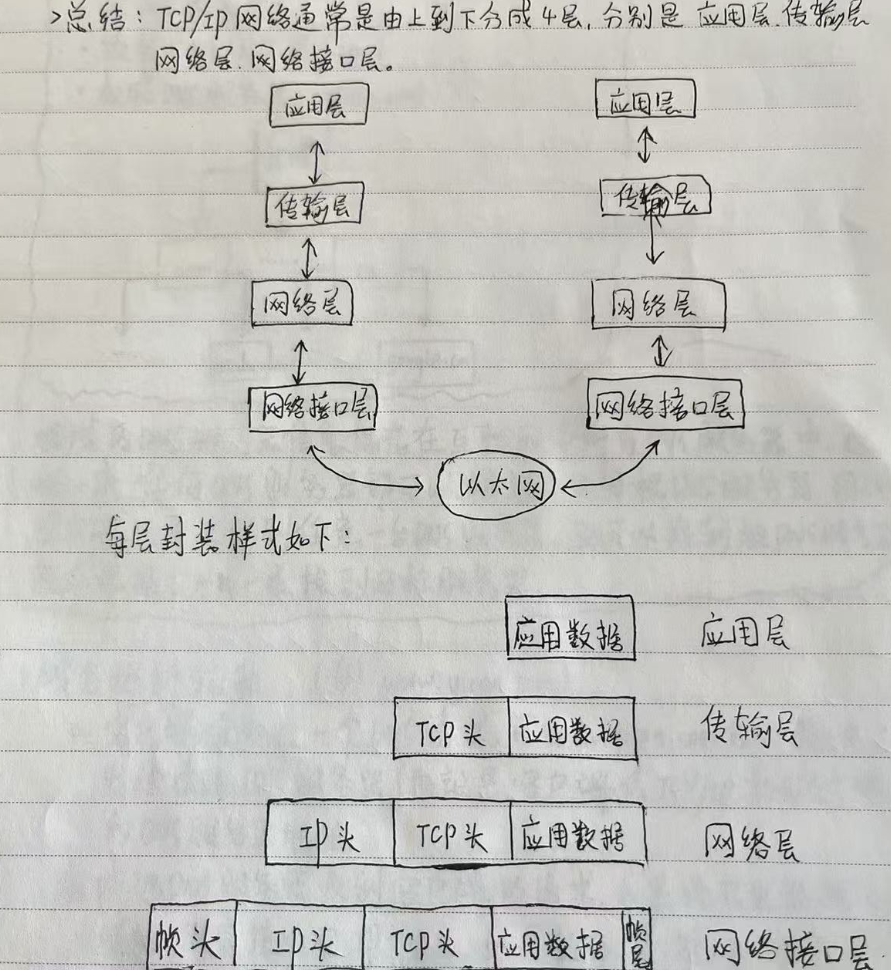 >总结：TCP/IP网络通常是由上到下分成4层，分别是 应用层、传输层
网络层、网络接口层。
应用层 应用层
传输层 传输层
网络层 网络层
网络接口层 网络接口层
以太网
每层封装样式如下：
应用数据 应用层
TCP头 应用数据 传输层
IP头 TCP头 应用数据 网络层
帧头 IP头 TCP头 应用数据 帧尾 网络接口层